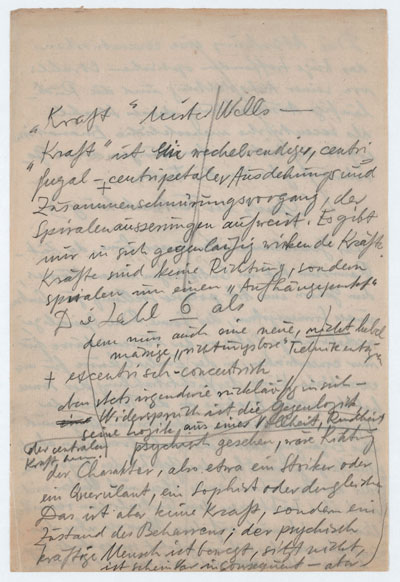 "Kraft"
"Kraft" ist ein wechselwendiger, centri
fugal - + centripetaler Ausdehnungs und
Zusammenschnürungsvorgang, der
Spiralenausserungen aufweist. Es gibt
nur in sich gegenläufig wirkende Kräfte.
Kräfte sind keine Richtung, sondern
spiralen um einen "Aufhängepunkt"
Die Zahl 6 als
dem nun auch eine neue, nicht
mässige, "richtungslose" Technik
+ excentrisch-concentrisch
aber stets irgendwie rückläufig in sich -
Widerspruch ist die Gegenlogik
seine Logik, aus einer
der centralen
Kraft
psychisch gesehen, wäre Richtung
der Charakter, also etwa ein Stoiker oder
ein Querulant, ein Sophist oder dergleichen
Das ist aber keine Kraft, sondern ein
Zustand des Beharrens; der psychisch
kräftige Mensch ist bewegt, nicht,
ist scheinbar inconsequent - aber